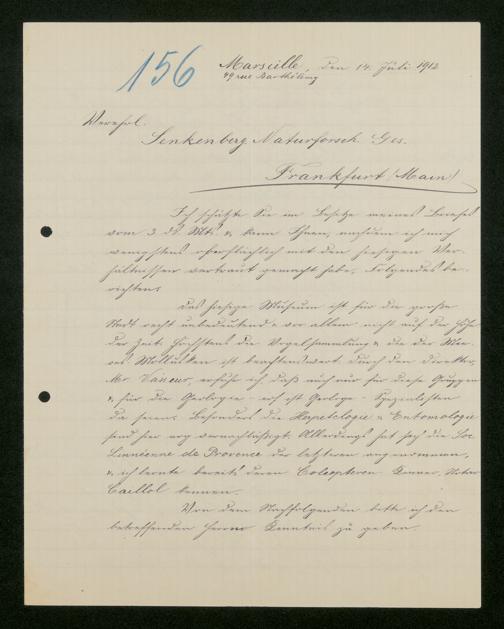 156
Marseille, den 14. Juli 1912
49 rue Barthélemy
Verehrl.
Senkenberg. Naturforsch. Ges.
Frankfurt (Main)
Ich schätze Sie im Besitze meines Briefes
vom 3 ds. Mts. & kann Ihnen, nachdem ich mich
wenigstens oberflächlich mit den hiesigen Ver-
hältnissen vertraut gemacht habe, Folgendes be-
richten:
Das hiesige Museum ist für die große
Stadt recht unbedeutend & vor allem nicht auf der Höhe
der Zeit. Höchstens die Vogelsammlung & die der
Mollusken ist beachtenswert. Durch den Direktor,
Mr. Vaneur, erfuhr ich, daß auch nur für diese Gruppen
& für die Geologie - er ist Geologe - Spezialisten
da seien. Besonders die Herpetologie & Entomologie
sind hier arg vernachlässigt. Allerdings hat sich die Soc.
Linnéenne de Provence der letzteren angenommen,
& ich lernte bereits deren Coleopteren Kenner,
Caillol kennen.
Von dem Nachfolgenden bitte ich den
betreffenden Herren Kenntnis zu geben.